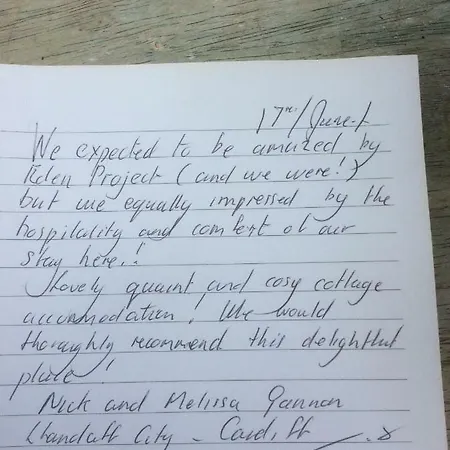 17th/June
We expected to be amazed by
Eden Project (and we were!)
but we equally impressed by the
hospitality and comfort of our
stay here.!
Lovely quaint and cosy cottage
accommodation! We would
thoroughly recommend this delightful
place!
Nick and Melissa Gannon
Llandaff City - Cardiff